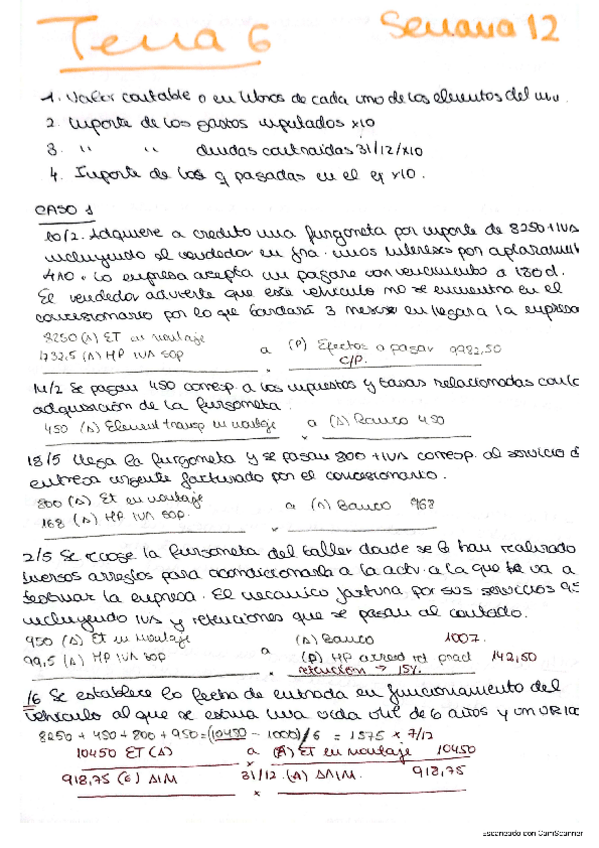 Tema 6 Semana 12
1. Valor contable o en libros de cada uno de los elementos del inv.
2. Importe de los gastos imputados x10
3. " " deudas contraídas 31/12/x10
4. Importe de los g pagadas en el ej x10.
CASO 1
10/2. Adquiere a credito una furgoneta por importe de 8250 + IVA
incluyendo el vendedor en fra. unos intereses por aplazamient
410. La empresa acepta un pagaré con vencimiento a 180 d.
El vendedor advierte que este vehículo no se encuentra en el
concesionario por lo que tardará 3 meses en llegar a la empresa
8250 (A) ET en montaje
1732,5 (A) HP IVA SOP a (P) Efectos a pagar 9982,50
C/P.
14/2 Se pagan 450 corresp. a los impuestos y tasas relacionadas con la
adquisición de la furgoneta.
450 (A) Element transp en montaje a (A) Banco 450
18/5 llega la furgoneta y se pagan 800 + IVA corresp. al servicio d
entrega urgente facturado por el concesionario.
800 (A) Et en montaje
168 (A) HP IVA SOP. a (A) Banco 968
2/5 Se recoge la furgoneta del taller donde se le han realizado
iversos arreglos para acondicionarla a la activ. a la que va a
la empresa. El mecánico factura por sus servicios 95
incluyendo IVA y retenciones que se pagan al contado.
950 (A) Et en montaje (A) Banco 1007.
99,5 (A) HP IVA SOP a (P) HP acreed ret pract 142,50
retención → 15%
/6 Se establece la fecha de entrada en funcionamiento del
vehículo al que se estima una vida útil de 6 años y un VR 10
8250 + 450 + 800 + 950 = (10450 - 1000)/6 = 1575 x 7/12
10450 ET (A) a (A) ET en montaje 10450
918,75 (G) AIM 31/12. (A) AAIM. 918,75
Escaneado con CamScanner